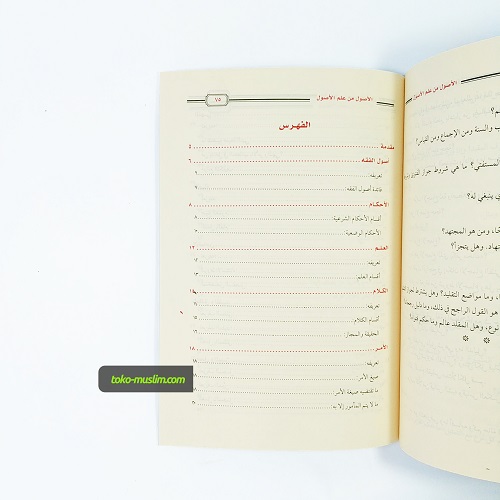 الأصول من علم الأصول
٧٥
الفهرس
مقدمة ٥
أصول الفقه ٦
تعريفه:
فائدة أصول الفقه:
الأحكام ٨
أقسام الأحكام الشرعية:
الأحكام الوضعية:
العلم ١٢
تعريفه: ١٢
أقسام العلم: ١٣
الكلام ١٥
تعريفه: ١٥
أقسام الكلام:
الحقيقة والمجاز:
الأمر ١٨
تعريفه:
صيغ الأمر:
ما تقتضيه صيغة الأمر:
ما لا يتم المأمور إلا به:
toko-muslim.com
الأصول من علم الأصول
والسنة ومن الإجماع ومن القياس؟
المستفتي؟ ما هي شروط جواز الفتوى
ينبغي له؟
ومن هو المجتهد؟
وهل يتجزأ؟
وما مواضع التقليد؟ وهل يشترط
هو القول الراجح في ذلك، وما دليل
وهل المقلد عالم وما حكم
* *